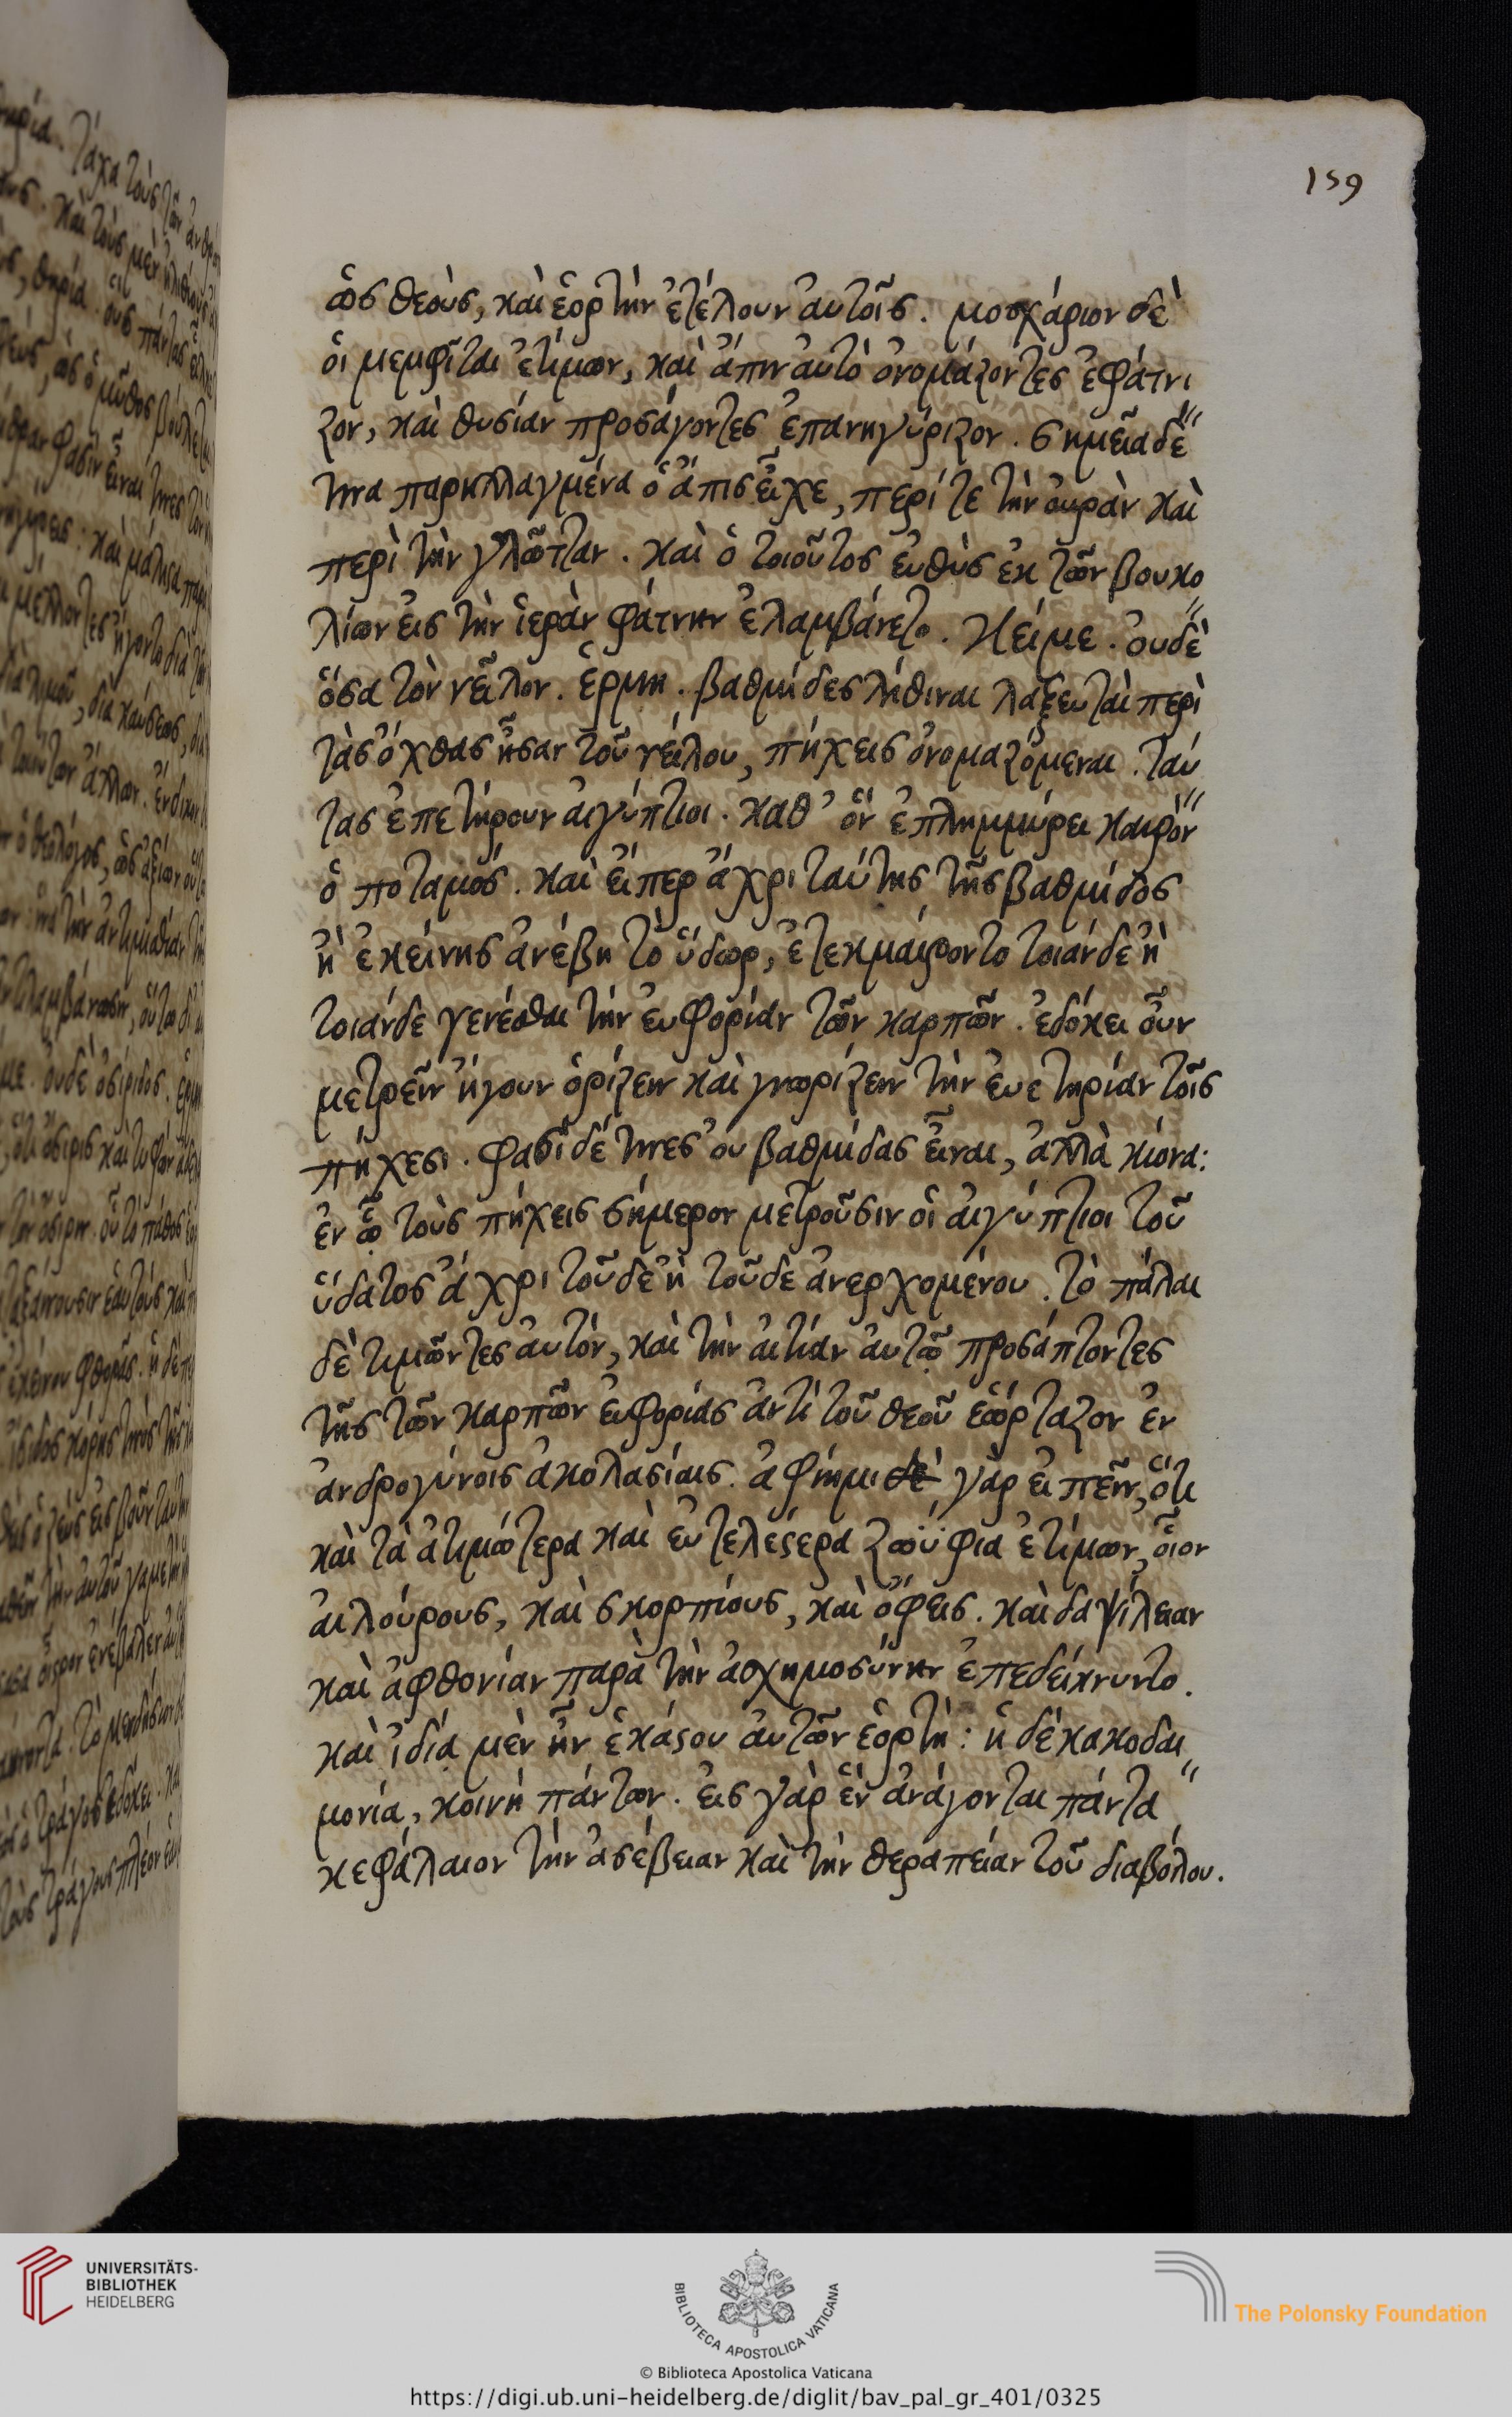 159
ὡς θεοὺς, καὶ ἑορτὴν ἐτέλουν αὐτοῖς. μοσχάριον δὲ
οἱ μεμφῖται ἐτίμων, καὶ ἄπιν αὐτὸ ὀνομάζοντες ἐφάτνι
ζον, καὶ θυσίαν προσάγοντες ἐπανηγύριζον. σημεῖα δὲ
τινα παρηλλαγμένα ὁ ἄπις εἶχε, περί τε τὴν οὐρὰν καὶ
περὶ τὴν γλῶτταν. καὶ ὁ τοιοῦτος εὐθὺς ἐκ τῶν βουκο
λίων εἰς τὴν ἱερὰν φάτνην ἐλαμβάνετο. κείμε. οὐδὲ
ὅσα τὸν νεῖλον. ἑρμη. βαθμίδες λίθιναι λαξευταὶ περὶ
τὰς ὄχθας ἦσαν τοῦ νείλου, πήχεις ὀνομαζόμεναι. ταύ
τας ἐπετήρουν αἰγύπτιοι. καθ' ὃν ἐπλημμύρει καιρὸν
ὁ ποταμός. καὶ εἴπερ ἄχρι ταύτης τῆς βαθμίδος
ἢ ἐκείνης ἀνέβη τὸ ὕδωρ, ἐτεκμαίροντο τοιάνδε ἢ
τοιάνδε γενέσθαι τὴν εὐφορίαν τῶν καρπῶν. ἐδόκει οὖν
μετρεῖν ἤγουν ὁρίζειν καὶ γνωρίζειν τὴν εὐετηρίαν τοῖς
πήχεσι. φασὶ δέ τινες οὐ βαθμίδας εἶναι, ἀλλὰ κίονα:
ἐν ᾧ τοὺς πήχεις σήμερον μετροῦσιν οἱ αἰγύπτιοι τοῦ
ὕδατος ἄχρι τοῦδε ἢ τοῦδε ἀνερχομένου. τὸ πάλαι
δὲ τιμῶντες αὐτόν, καὶ τὴν αἰτίαν αὐτῷ προσάπτοντες
τῆς τῶν καρπῶν εὐφορίας ἀντὶ τοῦ θεοῦ ἑώρταζον ἐν
ἀνδρογύνοις ἀκολασίαις. ἀφίημι δὲ γὰρ εἰπεῖν, ὅτι
καὶ τὰ ἀτιμώτερα καὶ εὐτελέστερα ζωΰφια ἐτίμων, οἷον
αἰλούρους, καὶ σκορπίους, καὶ ὄφεις. καὶ δαψίλειαν
καὶ ἀφθονίαν παρὰ τὴν ἀσχημοσύνην ἐπεδείκνυντο.
καὶ ἰδίᾳ μὲν ἦν ἑκάστου αὐτῶν ἑορτὴ: ἡ δὲ κακοδαι
μονία, κοινὴ πάντων. εἰς γὰρ ἓν ἀνάγονται πάντα
κεφάλαιον τὴν ἀσέβειαν καὶ τὴν θεραπείαν τοῦ διαβόλου.
UNIVERSITÄTS-
BIBLIOTHEK
HEIDELBERG
BIBLIOTECA APOSTOLICA VATICANA
© Biblioteca Apostolica Vaticana
The Polonsky Foundation
https://digi.ub.uni-heidelberg.de/diglit/bav_pal_gr_401/0325